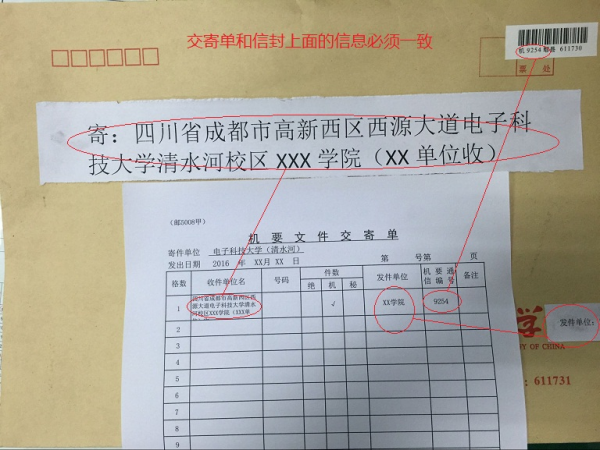 交寄单和信封上面的信息必须一致
机 9254 郫县 611730
票 处
寄：四川省成都市高新西区西源大道电子科
技大学清水河校区 XXX 学院（XX 单位收）
（邮5008甲）
机 要 文 件 交 寄 单
寄件单位 电子科技大学（清水河）
发出日期 2016 年 XX月 XX 日 第 号第 页
格数 收件单位名 号码 件数 发件单位 机要通信编号 备注
绝 机 秘
1 四川省成都市高新西区西源大道电子科技大学清水河校区XXX学院（XXX单 √ XX学院 9254
2
3
4
5
6
7
8
9
发件单位：
学
Y OF CHINA
：611731